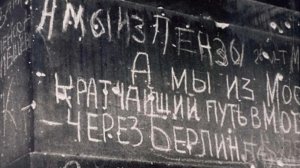 МЫ ИЗ ПЕНЗЫ
А МЫ ИЗ МОС
КРАТЧАЙШИЙ ПУТЬ В МОС
—ЧЕРЕЗ БЕРЛИН